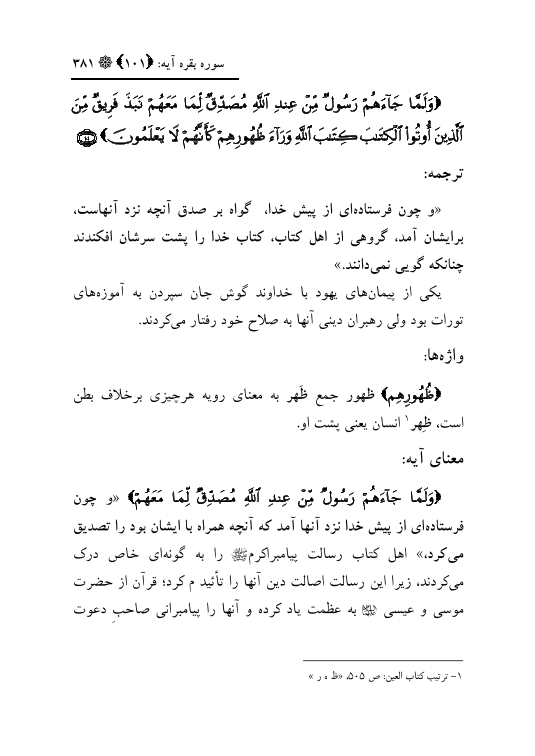 سوره بقره آیه: ﴿۱۰۱﴾ ۳۸۱
﴿وَلَمَّا جَآءَهُمۡ رَسُولٞ مِّنۡ عِندِ ٱللَّهِ مُصَدِّقٞ لِّمَا مَعَهُمۡ نَبَذَ فَرِيقٞ مِّنَ
ٱلَّذِينَ أُوتُواْ ٱلۡكِتَٰبَ كِتَٰبَ ٱللَّهِ وَرَآءَ ظُهُورِهِمۡ كَأَنَّهُمۡ لَا يَعۡلَمُونَ﴾
ترجمه:
«و چون فرستاده‌ای از پیش خدا، گواه بر صدق آنچه نزد آنهاست،
برایشان آمد، گروهی از اهل کتاب، کتاب خدا را پشت سرشان افکندند
چنانکه گویی نمی‌دانند.»
یکی از پیمان‌های یهود با خداوند گوش جان سپردن به آموزه‌های
تورات بود ولی رهبران دینی آنها به صلاح خود رفتار می‌کردند.
واژه‌ها:
﴿ظُهُورِهِم﴾ ظهور جمع ظَهر به معنای رویه هرچیزی برخلاف بطن
است، ظِهر۱ انسان یعنی پشت او.
معنای آیه:
﴿وَلَمَّا جَآءَهُمۡ رَسُولٞ مِّنۡ عِندِ ٱللَّهِ مُصَدِّقٞ لِّمَا مَعَهُمۡ﴾ «و چون
فرستاده‌ای از پیش خدا نزد آنها آمد که آنچه همراه با ایشان بود را تصدیق
می‌کرد،» اهل کتاب رسالت پیامبراکرمﷺ را به گونه‌ای خاص درک
می‌کردند، زیرا این رسالت اصالت دین آنها را تأئید م کرد؛ قرآن از حضرت
موسی و عیسی به عظمت یاد کرده و آنها را پیامبرانی صاحبِ دعوت
۱- ترتیب کتاب العین: ص ۵۰۵، «ظ ه ر »